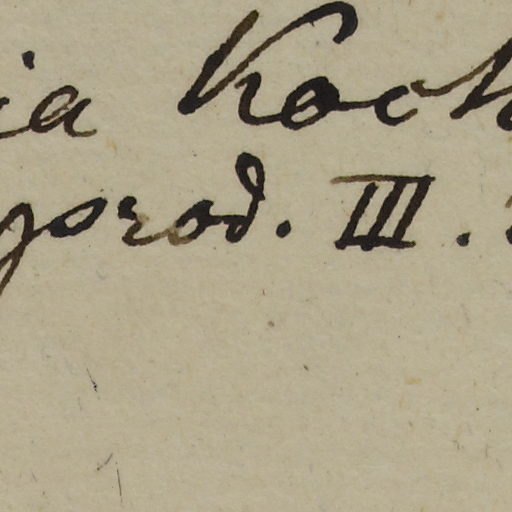 ia Koch
gorod. III.